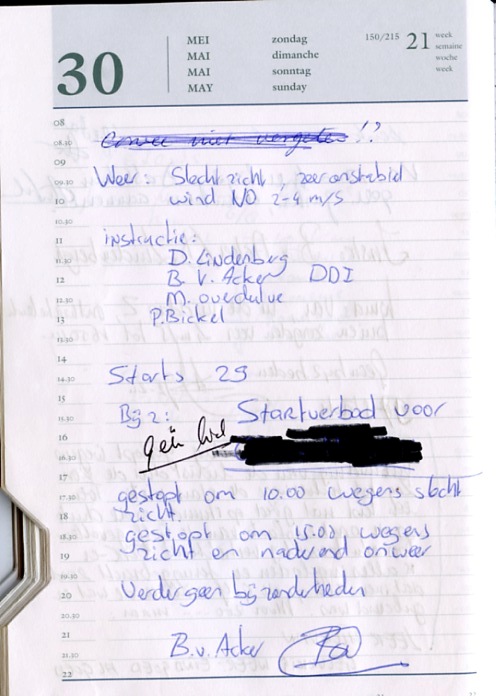 30
MEI zondag 150/215 21 week
MAI dimanche semaine
MAI sonntag woche
MAY sunday week
08
08.30 niet vergeten !?
09
09.30 Weer: Slecht zicht, zeer onstabiel
10 wind NO 2-4 m/s
10.30
11 instructie:
11.30 D. Lindenberg
12 B. v. Acker DDI
12.30 M. overdulve
13 P. Bickel
14
14.30 Starts 29
15
15.30 Bij z: Startverbod voor
16
16.30
17
17.30 gestopt om 10.00 wegens slecht
18 zicht.
18.30 gestopt om 15.00 wegens
19 zicht en naderend onweer
19.30
20 Verder geen bijzonderheden
20.30
21
21.30 B.v. Acker
22